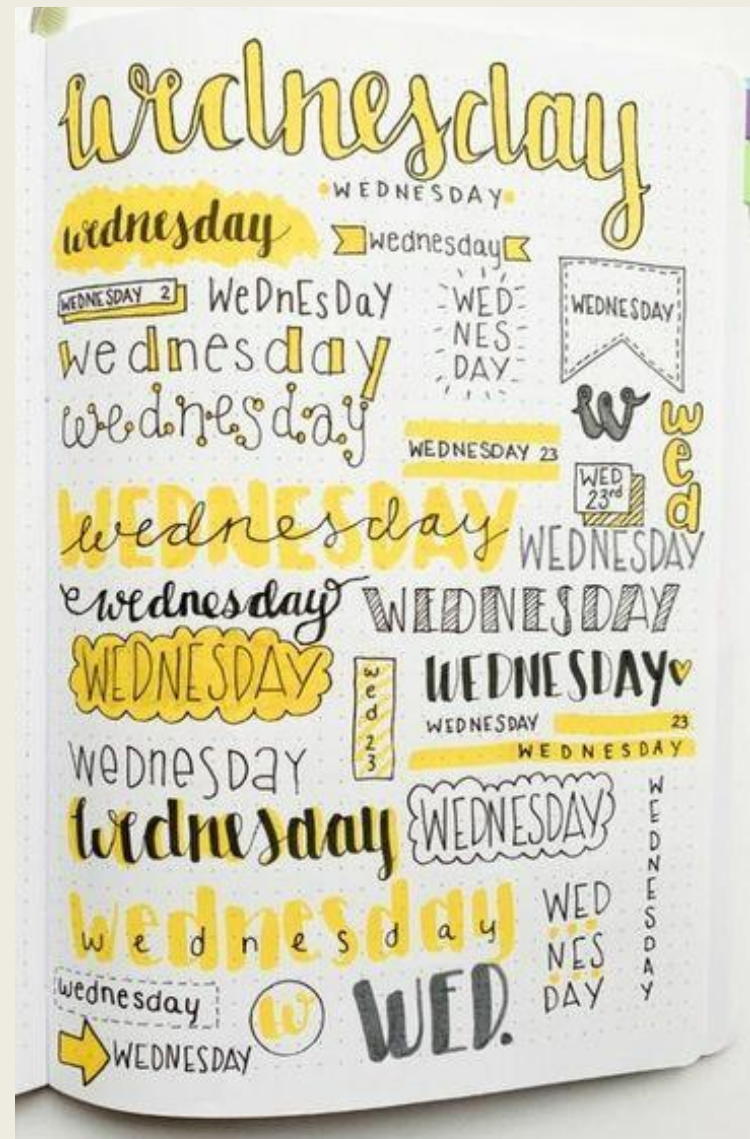 wednesday
WEDNESDAY
wednesday
wednesday
WEDNESDAY 2
WeDnEsDaY
WED
NES
DAY
WEDNESDAY
wednesday
wednesday
W
wed
WEDNESDAY 23
WED
23rd
WEDNESDAY
wednesday
WEDNESDAY
wednesday
WEDNESDAY
WEDNESDAY
wed 23
WEDNESDAY
WEDNESDAY 23
WEDNESDAY
wednesday
wednesday
WEDNESDAY
WEDNESDAY
wednesday
wednesday
WED
NES
DAY
wednesday
w
WED.
WEDNESDAY